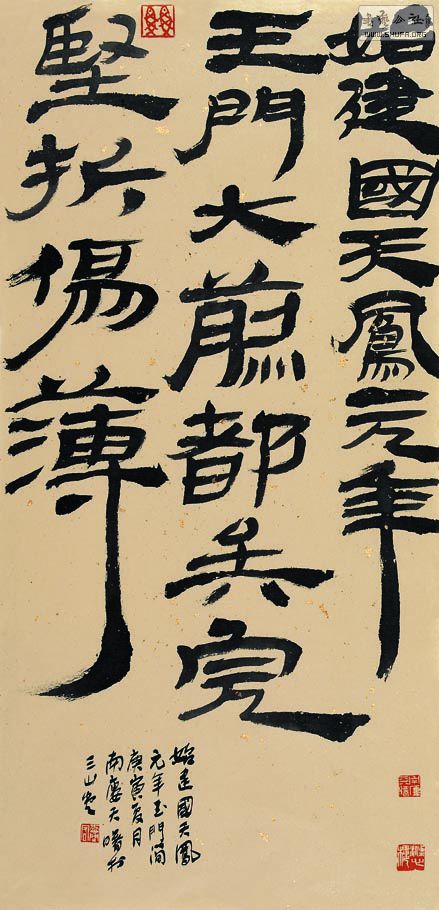 始建國天鳳元年
玉門大煎都兵完
堅折傷薄
始建國天鳳
元年玉門簡
庚寅夏月
南天於
三山
WWW.SHUFA.ORG